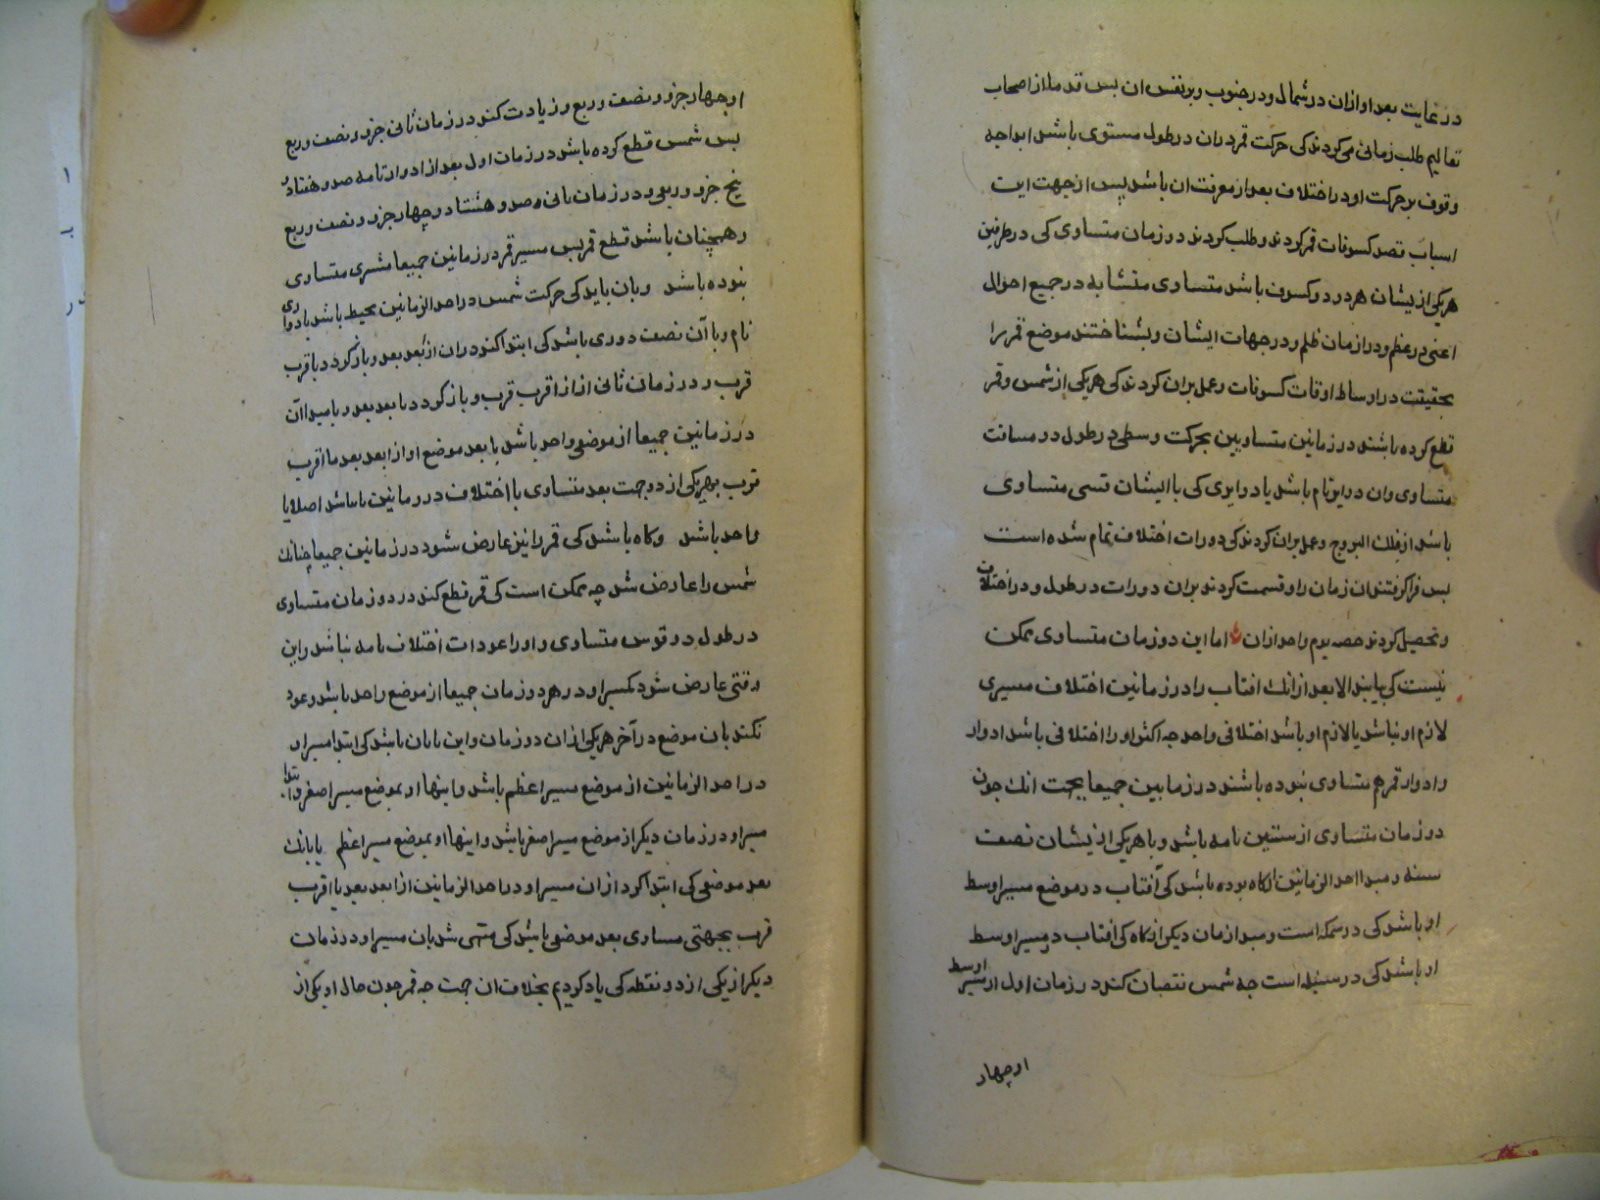 در نهایت بعد او ازان در شمال و در جنوب و بر نفس ان بس قدما از اصحاب
تعالیم طلب زمانی می کردند کی حرکت قمر دران در طول مستوی باشد ابدا چه
وقوف بر حرکت او در اختلاف بعد از معرفت ان باشد پس از جهت این
اسباب قصد کسوفات قمر کردند و طلب کردند دو زمان متساوی کی در طرفین
هر یکی ازیشان هر دو دو کسوف باشد متساوی متشابه در جمیع احوال
اعنی در عظم و در ازمان ظلم و در جهات ایشان و بشناختند موضع قمر را
بحقیقت در اوساط اوقات کسوفات و عمل بران کردند کی هر یکی از شمس و قمر
قطع کرده باشند در زمانین متساویین بحرکت وسطی در طول دو مسافت
متساوی وان دوایر تام باشد یا دوایری کی با ایشان قسی متساوی
باشد از فلك البروج و عمل بران کردند کی دورات اختلاف تمام شده است
بس فرا کرفتند ان زمان را و قسمت کردند بران دورات در طول و در اختلاف
و تحصیل کردند حصه یوم واحد ازان اما این دو زمان متساوی ممکن
نیست کی یابند الا بعد از انك افتاب را در زمانین اختلاف مسیری
لازم او نباشد یا لازم او باشد اختلافی واحد چه اکثر او را اختلافی باشد ادوار
و ادوار قمر هم متساوی نبوده باشند در زمانین جمیعا بجهت انك جون
دو زمان متساوی از سنین تامه باشد و با هر یکی ازیشان نصف
سنه و مبدا احد الزمانین انکاه بوده باشد کی آفتاب در موضع مسیر اوسط
او باشد کی در سمکه است و مبدا زمان دیکر انکاه کی افتاب در مسیر اوسط
او باشد کی در سنبله است چه شمس نقصان کند در زمان اول از مسیر اوسط
او چهار
او چهار جزو و نصف و ربع و زیادت کند در زمان ثانی جزو و نصف و ربع
بس شمس قطع کرده باشد در زمان اول بعد از ادوار تامه صد و هفتاد و
پنج جزو و ربعی و در زمان ثانی صد و هشتاد و چهار جزو و نصف و ربع
و همچنان باشد قطع قمر بس مسیر قمر در زمانین جمیعا متساوی
نبوده باشد و بان باید کی حرکت شمس در احد الزمانین محیط باشد بادواری
تام و با آن نصف دوری باشد کی ابتدا کند دران از بعد بعد و باز کردد باقرب
قرب و در زمان ثانی از اقرب قرب و باز کردد بابعد بعد و یا مبدا آن
در زمانین جمیعا از موضعی واحد باشد یا بعد موضع او از ابعد بعد یا اقرب
قرب بهر یکی از دو جهت بعد متساوی یا اختلاف در زمانین نباشد اصلا یا
واحد باشد و کاه باشد کی قمر را نیز عارض شود در زمانین جمیعا چنانك
شمس را عارض شد چه ممکن است کی قمر قطع کند در دو زمان متساوی
در طول دو قوس متساوی و او را عودات اختلاف تامه نباشد و این
وقتی عارض شود کمسیر او در هر دو زمان جمیعا از موضع واحد باشد و عود
نکند بان موضع در آخر هر یکی ازان دو زمان و این بان باشد کی ابتدا مسیر او
در احد الزمانین از موضع مسیر اعظم باشد و انتها او بموضع مسیر اصغر و ابتدا
مسیر او در زمان دیکر از موضع مسیر اصغر باشد و انتها او بموضع مسیر اعظم یا بانك
بعد موضعی کی ابتدا کرد ازان مسیر او در احد الزمانین از ابعد بعد یا اقرب
قرب بجهتی مساوی بعد موضعی باشد کی منتهی شد بان مسیر او در زمان
دیکر از یکی از دو نقطه کی یاد کردیم بخلاف ان جهت چه قمر جون حال او یکی از